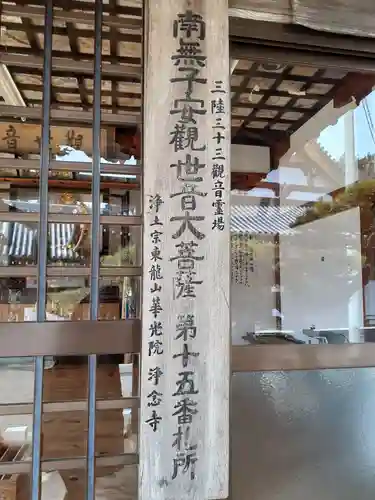 三陸三十三観音霊場
南無子安觀世音大菩薩 第十五番札所
浄土宗東龍山華光院 浄念寺